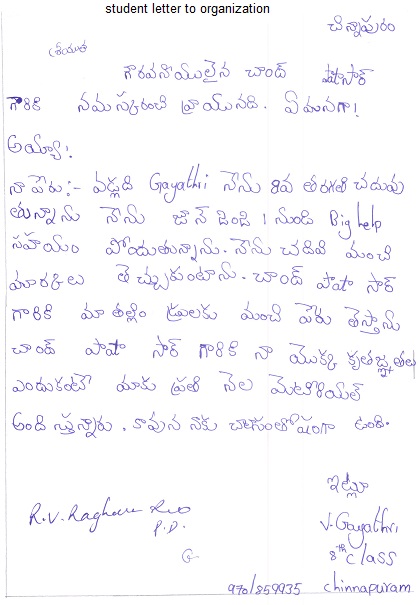 student letter to organization
చిన్నాపురం
శ్రీయుత
గౌరవనీయులైన చాంద్ పాషాసార్
గారికి నమస్కరించి వ్రాయునది. ఏమనగా!
అయ్యా!
నా పేరు:- వడ్లది Gayathri నేను 8వ తరగతి చదువు
తున్నాను నేను జూన్ నుండి Big help
సహయం పొందుతున్నాను. నేను చదివి మంచి
మార్కులు తెచ్చుకుంటాను. చాంద్ పాషా సార్
గారికి మా తల్లిం డ్రులకు మంచి పేరు తెస్తాను
చాంద్ పాషా సార్ గారికి నా యొక్క కృతజ్ఞతలు
ఎందుకంటే మాకు ప్రతి నెల మెటీరియల్
అంది స్తున్నారు. కావున నాకు చాలాసంతోషంగా ఉంది.
ఇట్లు
R.V. Raghava Rao
P.D.
V. Gayathri
8th class
9701859935 chinnapuram